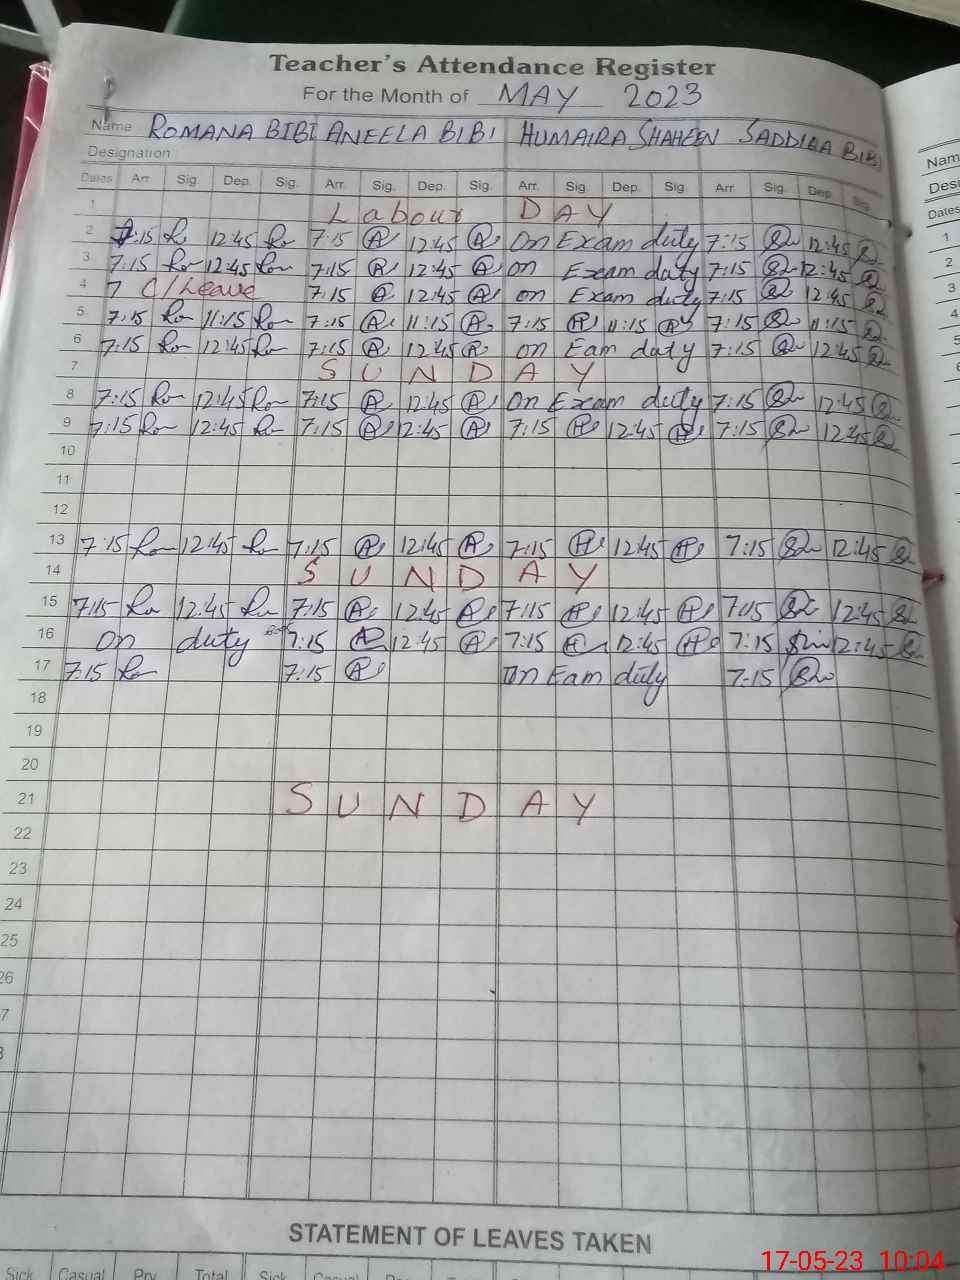 Teacher's Attendance Register
For the Month of MAY 2023
Name ROMANA BIBI ANEELA BIBI HUMAIRA SHAHEEN SADDIQA BIBI
Designation
Dates Arr. Sig. Dep. Sig. Arr. Sig. Dep. Sig. Arr. Sig. Dep. Sig. Arr. Sig. Dep. Sig.
1 Labour DAY
2 7:15 12:45 7:15 12:45 On Exam duty 7:15 12:45
3 7:15 12:45 7:15 12:45 on Exam duty 7:15 12:45
4 C/Leave 7:15 12:45 on Exam duty 7:15 12:45
5 7:15 11:15 7:15 11:15 7:15 11:15 7:15 11:15
6 7:15 12:45 7:15 12:45 on Eam duty 7:15 12:45
7 SUNDAY
8 7:15 12:45 7:15 12:45 On Exam duty 7:15 12:45
9 7:15 12:45 7:15 12:45 7:15 12:45 7:15 12:45
10
11
12
13 7:15 12:45 7:15 12:45 7:15 12:45 7:15 12:45
14 SUNDAY
15 7:15 12:45 7:15 12:45 7:15 12:45 7:15 12:45
16 on duty 7:15 12:45 7:15 12:45 7:15 12:45
17 7:15 7:15 on Eam duty 7:15
18
19
20
21 SUNDAY
22
23
24
25
26
7
STATEMENT OF LEAVES TAKEN
Sick Casual Prv. Total Sick Casual
Nam
Desi
Dates
1
2
3
4
5
6
17-05-23 10:04